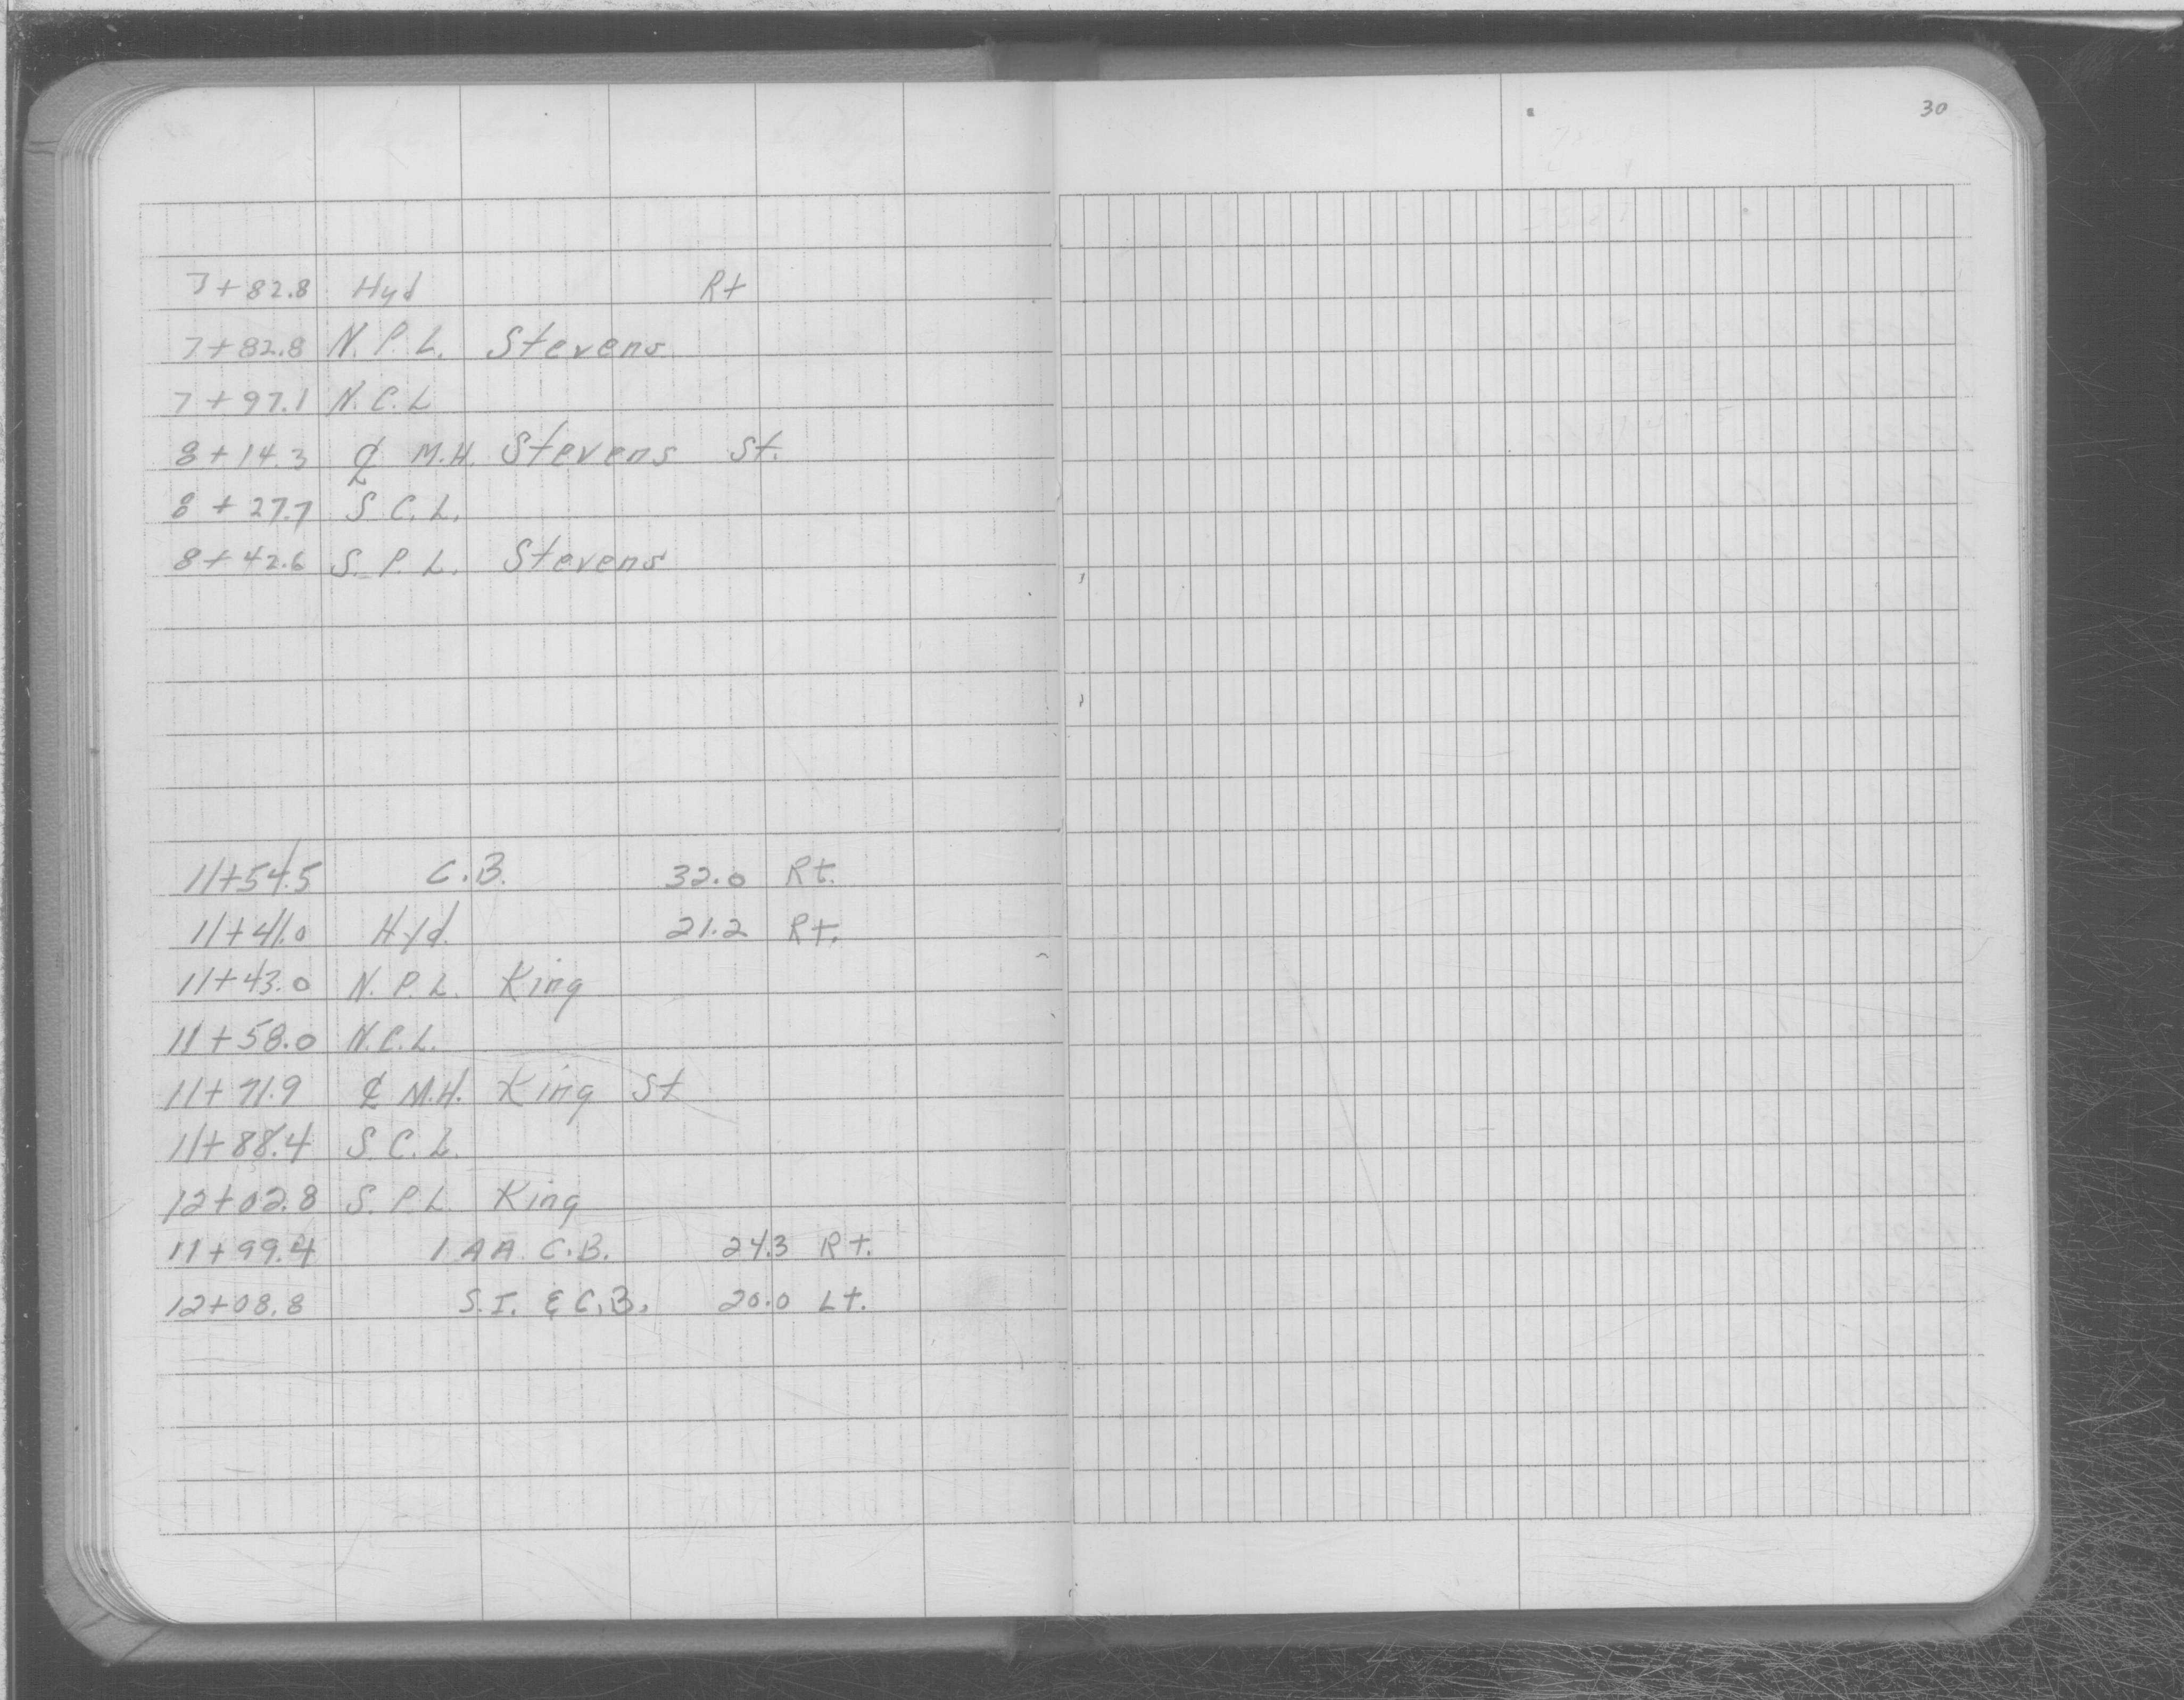 30
7+82.8 Hyd Rt
7+82.8 N.P.L. Stevens
7+97.1 N.C.L
8+14.3 ℄ M.H. Stevens St.
8+27.7 S.C.L.
8+42.6 S.P.L. Stevens
11+54.5 C.B. 32.0 Rt.
11+41.0 Hyd. 21.2 Rt.
11+43.0 N.P.L. King
11+58.0 N.C.L.
11+71.9 ℄ M.H. King St
11+88.4 S.C.L.
12+02.8 S.P.L. King
11+99.4 1 AA C.B. 24.3 Rt.
12+08.8 S.I. & C.B. 20.0 Lt.